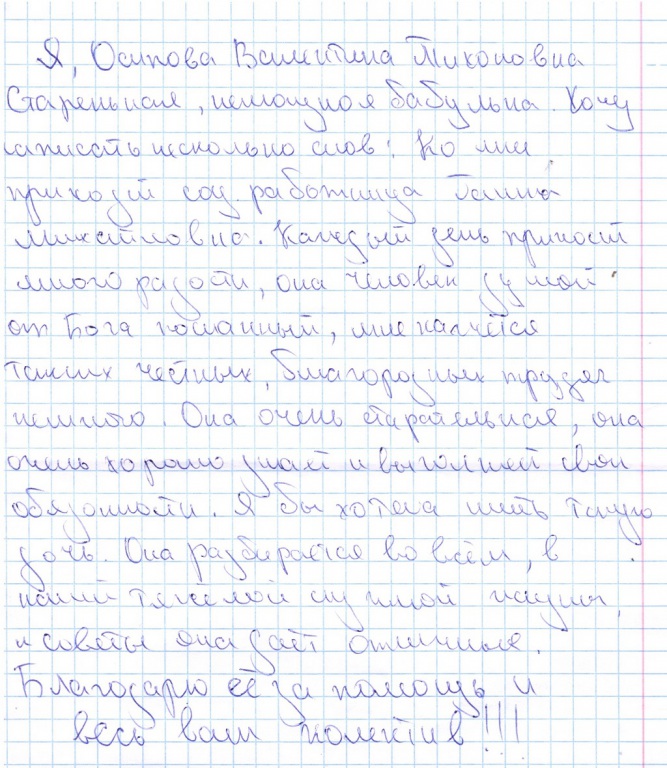 Я, Осипова Валентина Тихоновна
Старенькая, немощная бабулька. Хочу
написать несколько слов: Ко мне
приходит соц. работница Галина
Михайловна. Каждый день приносит
много радости, она человек душой
от Бога посланный, мне кажется
таких честных, благородных трудяг
немного. Она очень старательная, она
очень хорошо знает и выполняет свои
обязанности. Я бы хотела иметь такую
дочь. Она разбирается во всём, в
нашей тяжелой нужной
и советы она даёт отличные.
Благодарю её за помощь и
весь ваш колектив!!!